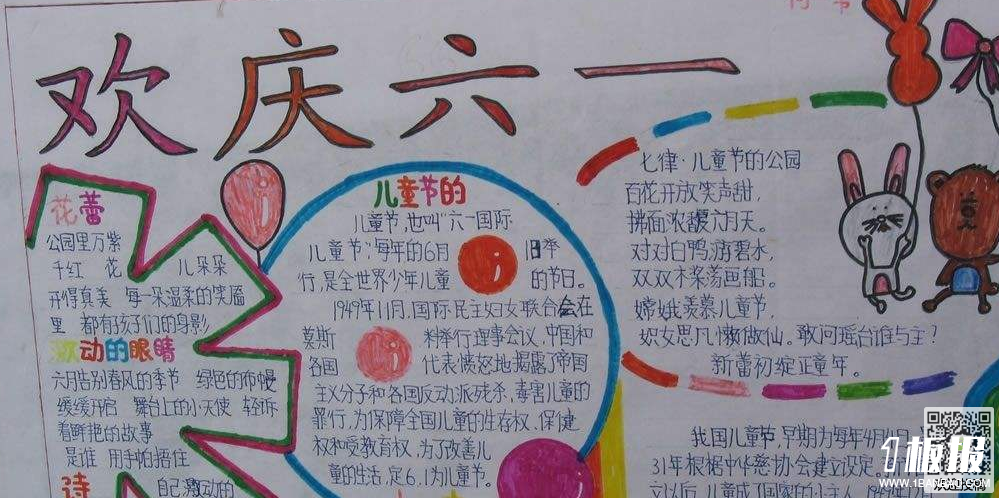 欢庆六一
花蕾
公园里万紫
千红 花 儿朵朵
开得真美 每一朵温柔的笑脸
里 都有孩子们的身影
激动的眼睛
六月告别春风的季节 绿色的布幔
缓缓开启 舞台上的小天使 轻诉
着鲜艳的故事
是谁 用手帕捂住
诗 自己激动的
儿童节的
儿童节,也叫"六一国际
儿童节",每年的6月 1日举
行,是全世界少年儿童 的节日。
1949年11月,国际民主妇女联合会在
莫斯 科举行理事会议,中国和
各国 代表愤怒地揭露了帝国
主义分子和各国反动派残杀、毒害儿童的
罪行,为保障全国儿童的生存权、保健
权和受教育权,为了改善儿
童的生活,定6.1为儿童节。
七律·儿童节的公园
百花开放笑声甜,
拂面浓馥六月天。
对对白鸭游碧水,
双双木桨荡画船。
嫦娥羡慕儿童节,
织女思凡懒做仙。敢问瑶台谁与主?
新蕾初绽正童年。
我国儿童节,早期为每年4月4日,
31年根据中华慈协会建立设定。
立以后,儿童成了国家的小主人
1板报
WWW.1BANBAO.COM